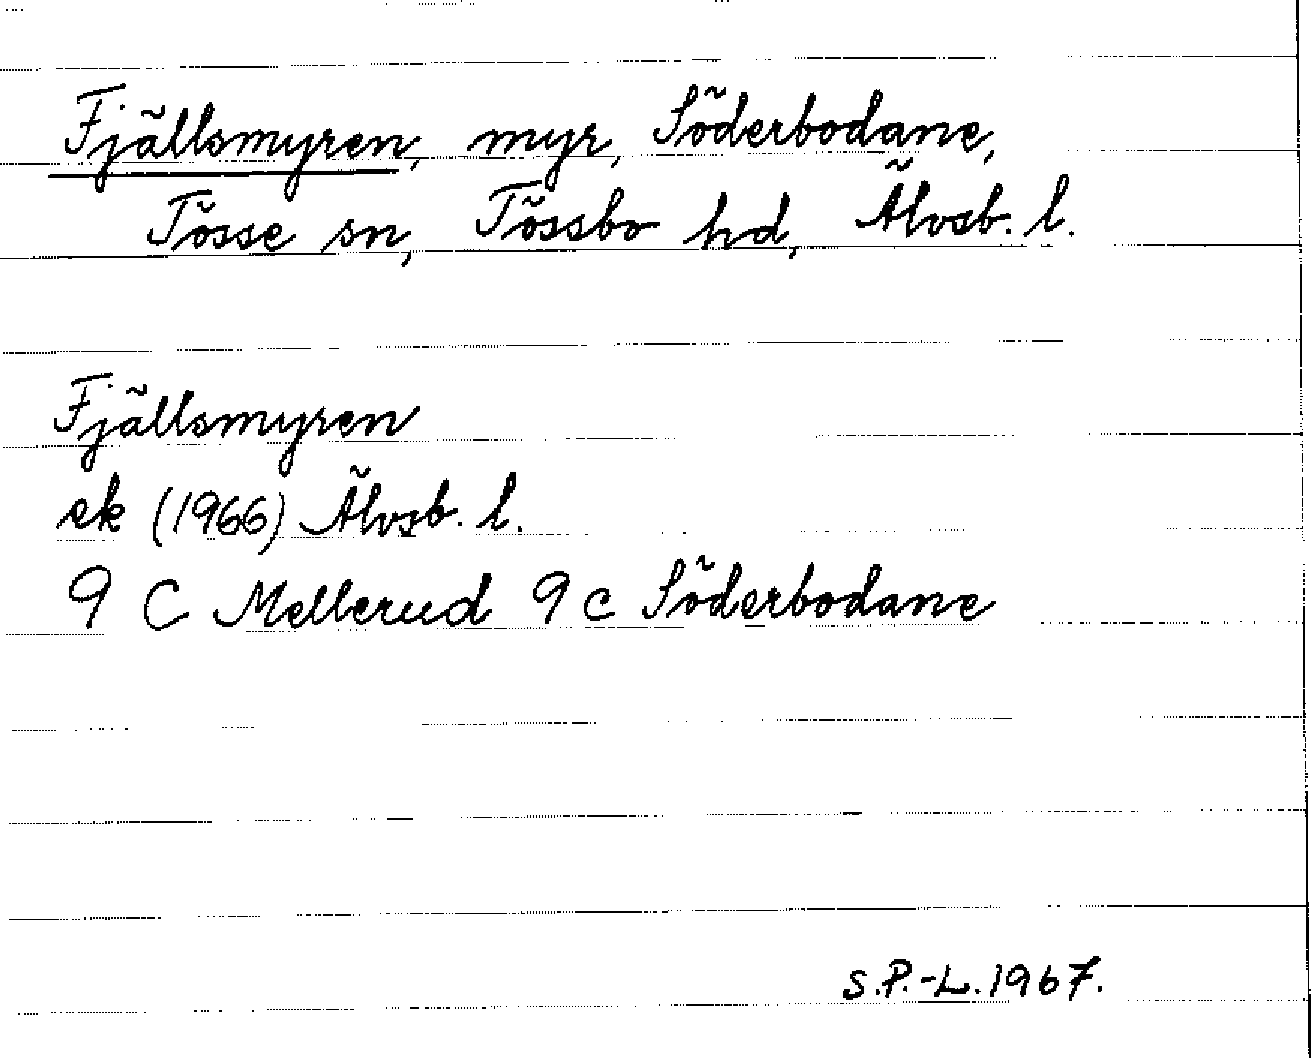 Fjällsmyren, myr, Söderbodane,
Tösse sn, Tössbo hd, Älvsb. l.
Fjällsmyren
ek (1966) Älvsb. l.
9 C Mellerud 9 c Söderbodane
S.P.-L. 1967.